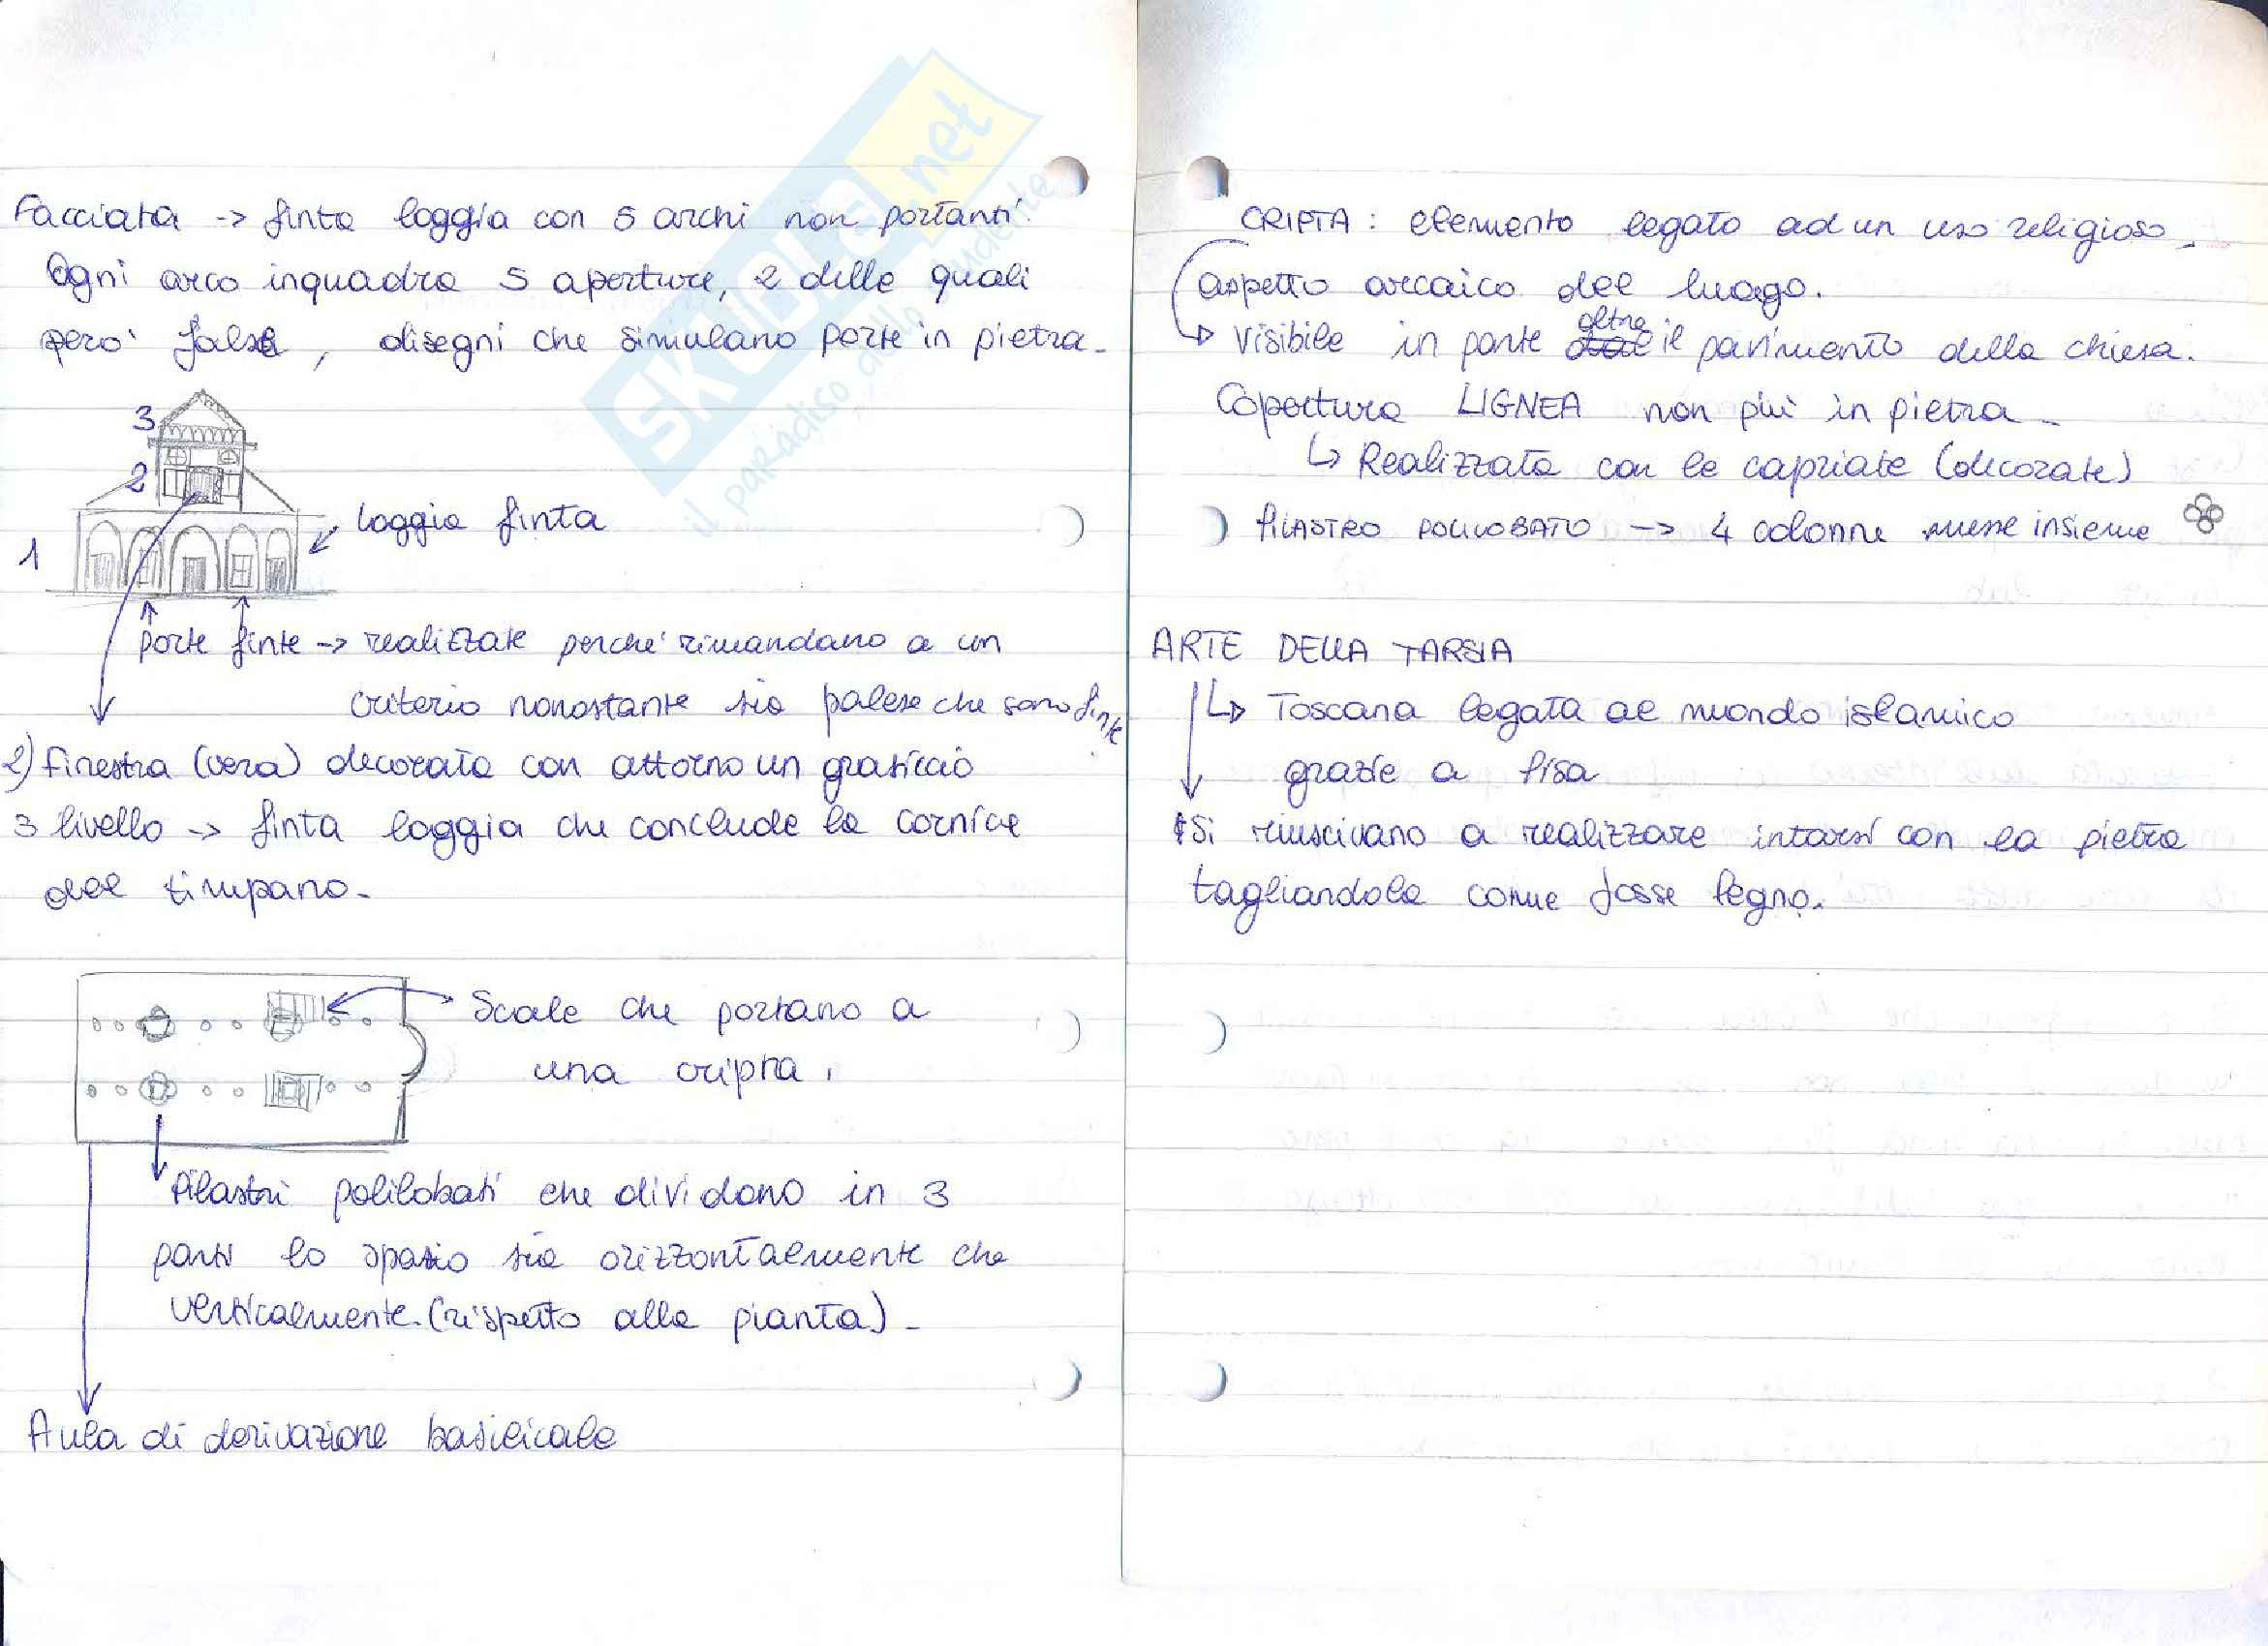 Facciata -> finta loggia con 5 archi non portanti.
Ogni arco inquadra 5 aperture, 2 delle quali
pero' false, disegni che simulano porte in pietra.
3
2
1
loggia finta
porte finte -> realizzate perche' rimandano a un
criterio nonostante sia palese che sono finte
2) finestra (vera) decorata con attorno un graticcio
3 livello -> finta loggia che conclude la cornice
del timpano.
Scale che portano a
una cripta.
Pilastri polilobati che dividono in 3
parti lo spazio sia orizzontalmente che
verticalmente. (rispetto alla pianta).
Aula di derivazione basilicale
CRIPTA: elemento legato ad un uso religioso.
aspetto arcaico del luogo.
visibile in parte oltre il pavimento della chiesa.
Copertura LIGNEA non più in pietra.
Realizzata con le capriate (decorate)
PILASTRO POLILOBATO -> 4 colonne messe insieme
ARTE DELLA TARSIA
Toscana legata al mondo islamico
grazie a Pisa
Si riuscivano a realizzare intarsi con la pietra
tagliandola come fosse legno.
SKUOLA.net
il paradiso dello studente